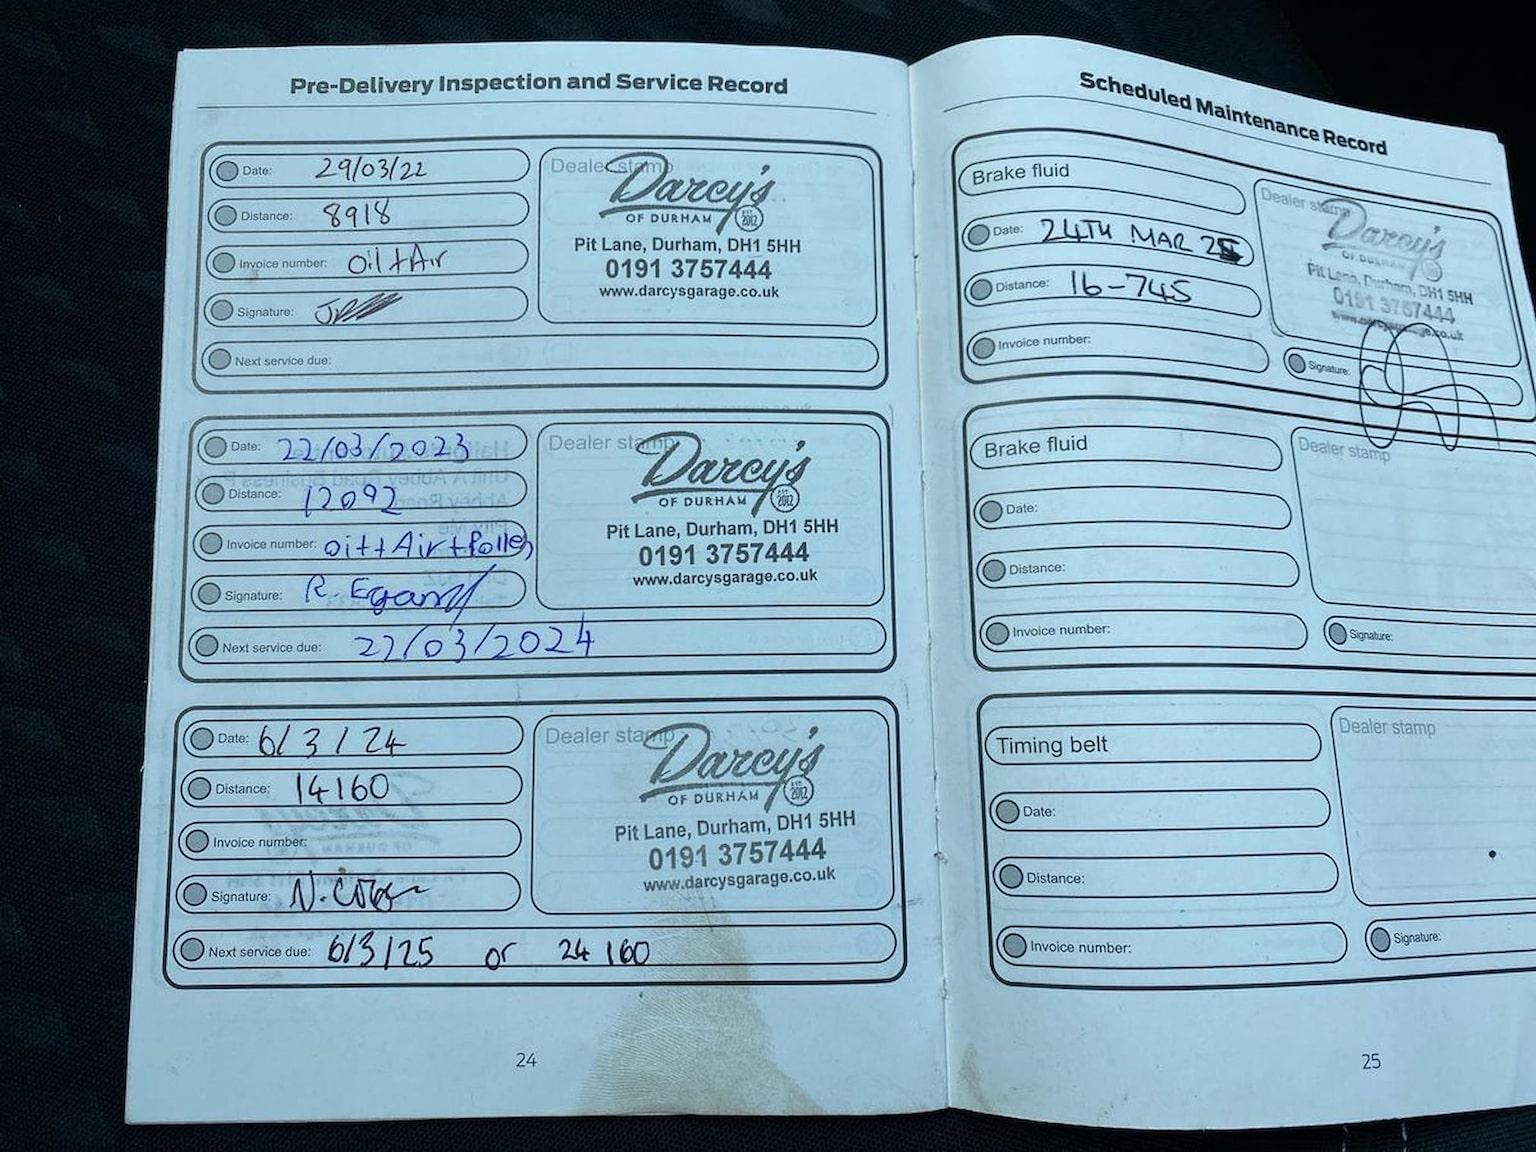 Pre-Delivery Inspection and Service Record
Date: 29/03/22
Distance: 8918
Invoice number: oil + Air
Signature:
Next service due:
Dealer stamp
Darcy's
OF DURHAM EST. 2012
Pit Lane, Durham, DH1 5HH
0191 3757444
www.darcysgarage.co.uk
Date: 22/03/2023
Distance: 12092
Invoice number: oil + Air + Pollen
Signature: R. Egan
Next service due: 22/03/2024
Dealer stamp
Darcy's
OF DURHAM EST. 2012
Pit Lane, Durham, DH1 5HH
0191 3757444
www.darcysgarage.co.uk
Date: 6/3/24
Distance: 14160
Invoice number:
Signature: N.
Next service due: 6/3/25 or 24160
Dealer stamp
Darcy's
OF DURHAM EST. 2012
Pit Lane, Durham, DH1 5HH
0191 3757444
www.darcysgarage.co.uk
24
Scheduled Maintenance Record
Brake fluid
Date: 24TH MAR 25
Distance: 16-745
Invoice number:
Dealer stamp
Darcy's
OF DURHAM
Pit Lane, Durham, DH1 5HH
0191 3757444
www.darcysgarage.co.uk
Signature:
Brake fluid
Date:
Distance:
Invoice number:
Dealer stamp
Signature:
Timing belt
Date:
Distance:
Invoice number:
Dealer stamp
Signature:
25